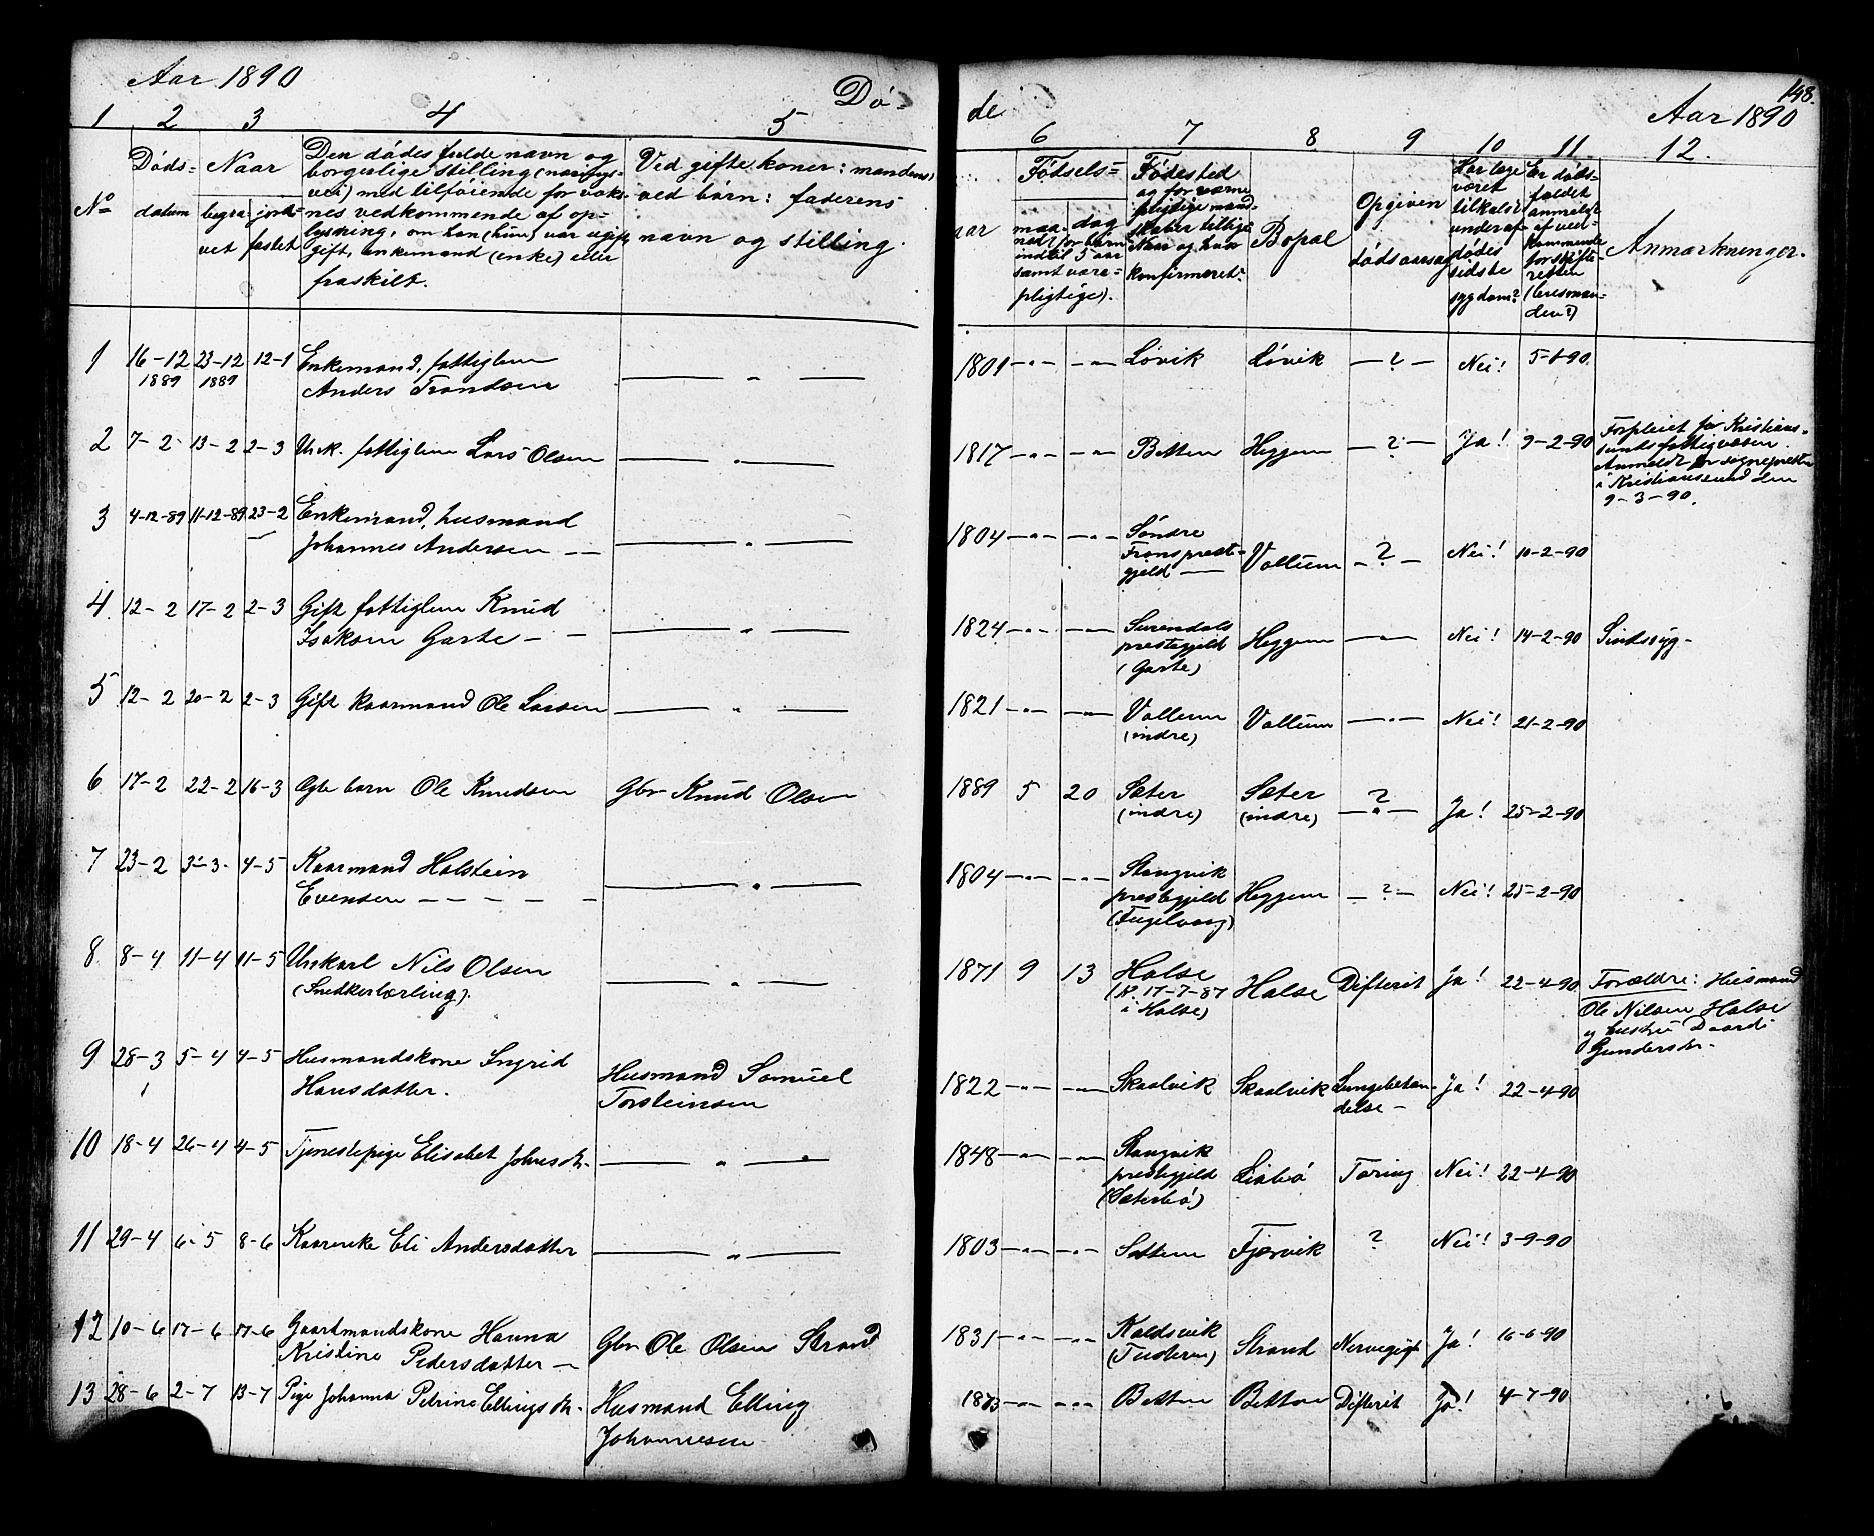 Aar 1890
Dø-
1 2 3 4 5
Nº
Døds-
datum
Naar
begra-
vet
jord-
fæstet
Den dødes fulde navn og
borgerlige stilling (nærings-
vei) med tilføiende for voks-
nes vedkommende af op-
lysning, om han (hun) var ugift,
gift, enkemand (enke) eller
fraskilt.
Ved gifte koner: mandens
ved børn: faderens
navn og stilling.
1 16-12 1889 23-12 1889 12-1 Enkemand, fattiglem
Anders Trondsen — " —
2 7-2 13-2 2-3 Unk. fattiglem Lars Olsen — " —
3 4-12-89 11-12-89 23-2 Enkemand, husmand
Johannes Andersen — " —
4 12-2 17-2 2-3 Gift fattiglem Knud
Isaksen Garte — " —
5 12-2 20-2 2-3 Gift kaarmand Ole Larsen — " —
6 17-2 22-2 16-3 Ægte barn Ole Knudsen Gbr Knud Olsen
7 23-2 3-3 4-5 Kaarmand Halstein
Evensen — " —
8 8-4 11-4 11-5 Unkarl Nils Olsen
(Snedkerlærling). — " —
9 28-3 5-4 4-5 Husmandskone Ingrid
Hansdatter. Husmand Samuel
Torsteinsen
10 18-4 26-4 4-5 Tjenestepige Elisabet Johnsdtr. — " —
11 29-4 6-5 8-6 Kaarenke Eli Andersdatter — " —
12 10-6 17-6 17-6 Gaardmandskone Hanna
Kristine Pedersdatter — Gbr Ole Olsen Strand
13 28-6 2-7 13-7 Pige Johanna Petrine Ellingsdtr. Husmand Elling
Johannesen
de
148.
Aar 1890
6 7 8 9 10 11 12.
Fødsels-
aar
maa-
ned
dag
for børn
indtil 5 aar
samt værne-
pligtige).
Fødested
og for værne-
pligtige mand-
skaber tillige
Naar og hvor
konfirmeret.
Bopæl
Opgiven
dødsaarsag
Har læge
været
tilkaldt
under af-
dødes
sidste
sygdom?
Er døds-
faldet
anmeldt
af ved-
kommende
for skifte-
retten
(lensman-
den?)
Anmærkninger.
1801 — " — — " — Løvik Løvik — ? — Nei! 5-1-90.
1817 — " — — " — Betten Heggem — ? — Ja! 9-2-90 Forpleiet for Kristian-
sunds fattigvæsen.
Anmeldt for sognepresten
i Kristianssund den
9-3-90.
1804 — " — — " — Søndre
Frons prest-
gjeld — Vattum — ? — Nei! 10-2-90
1824 — " — — " — Surendals
prestegjeld
(Garte) Heggem — " — Nei! 14-2-90 Sindssyg-
1821 — " — — " — Vattum
(indre) Vattum — " — Nei! 21-2-90
1889 5 20 Sæter
(indre) Sæter
(indre) ?
— " — Ja! 25-2-90
1804 — " — — " — Stangvik
prestegjeld
(Fugelvaag) Heggem — ? — Nei! 25-2-90
1871 9 13 Halse
(K. 17-7-87
i Halse) Halse Difterit Ja! 22-4-90 Forældre: Husmand
Ole Nilsen Halse
og hustru Daardi
Gundersdtr.
1822 — " — — " — Skaalvik Skaalvik Lungebetæn-
delse — Ja! 22-4-90
1848 — " — — " — Stangvik
prestegjeld
(Sæterbø) Liabø Tæring Nei! 22-4-90
1803 — " — — " — Settem Fjærvik ? Nei! 3-9-90
1831 — " — — " — Koldsvik
(Tusteren) Strand Nervegigt Ja! 16-6-90
1873 — " — — " — Betten Betten Difterit Ja! 4-7-90